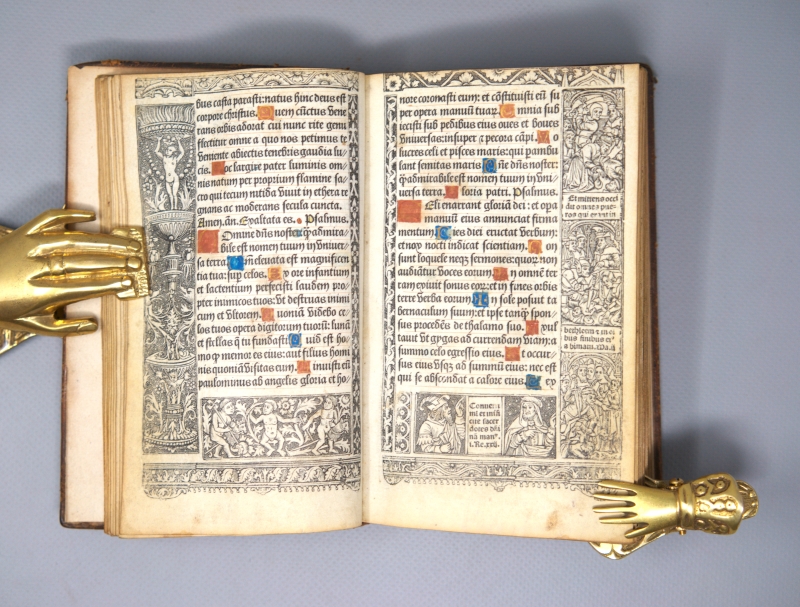 bus casta parasti: natus hinc deus est
corpore christus. Quem cūctus vene
rans orbis adorat cui nunc rite genu
flectitur omne a quo nos petimus te
veniente abiectis tenebris gaudia lu⸗
cis. Hoc largire pater luminis om⸗
nis natum per proprium flamine sa⸗
cro qui tecum nitida vivit in ethera re
gnans ac moderans secula cuncta.
Amen. ān. Exaltata es. Psalmus.
Domine dn̄s noster: q̄ admira⸗
bile est nomen tuum in vniver⸗
sa terra. Qm̄ elevata est magnificen
tia tua: sup̄ celos. Ex ore infantium
et lactentium perfecisti laudem pro⸗
pter inimicos tuos: vt destruas inimi
cum et vltorem. Quoniā videbo ce⸗
los tuos opera digitorum tuorū: lunā
et stellas q̄ tu fundasti. Quid est ho⸗
mo ꝙ memor es eius: aut filius homi
nis quoniā visitas eum. Minuisti eū
paulominus ab angelis gloria et ho⸗
nore coronasti eum: et cōstituisti eū su
per opera manuū tuaꝝ. Omnia sub
iecisti sub pedibus eius oves et boves
vniversas: insuper et pecora cāpi. Vo
lucres celi et pisces maris: qui pambu
lant semitas maris. Dn̄e dn̄s noster:
q̄ admirabile est nomen tuum in vni⸗
versa terra. Gloria patri. Psalmus.
Celi enarrant gloriā dei: et opa
manuū eius annunciat firma
mentum. Dies diei eructat verbum:
et nox nocti indicat scientiam. Non
sunt loquele neqꝫ sermones: quor non
audiātur voces eorum. In omnē ter
ram exivit sonus eoꝝ: et in fines orbis
terre verba eorum. In sole posuit ta
bernaculum suum: et ipse tanq̄ spon⸗
sus procedēs de thalamo suo. Exul
tavit vt gygas ad currendam viam: a
summo celo egressio eius. Et occur⸗
sus eius vsqꝫ ad summū eius: nec est
qui se abscondat a calore eius. Lex
Et mittens occi
dit omnes pue⸗
ros qui erāt in
bethleem et in oī
bus finibus ei⸗